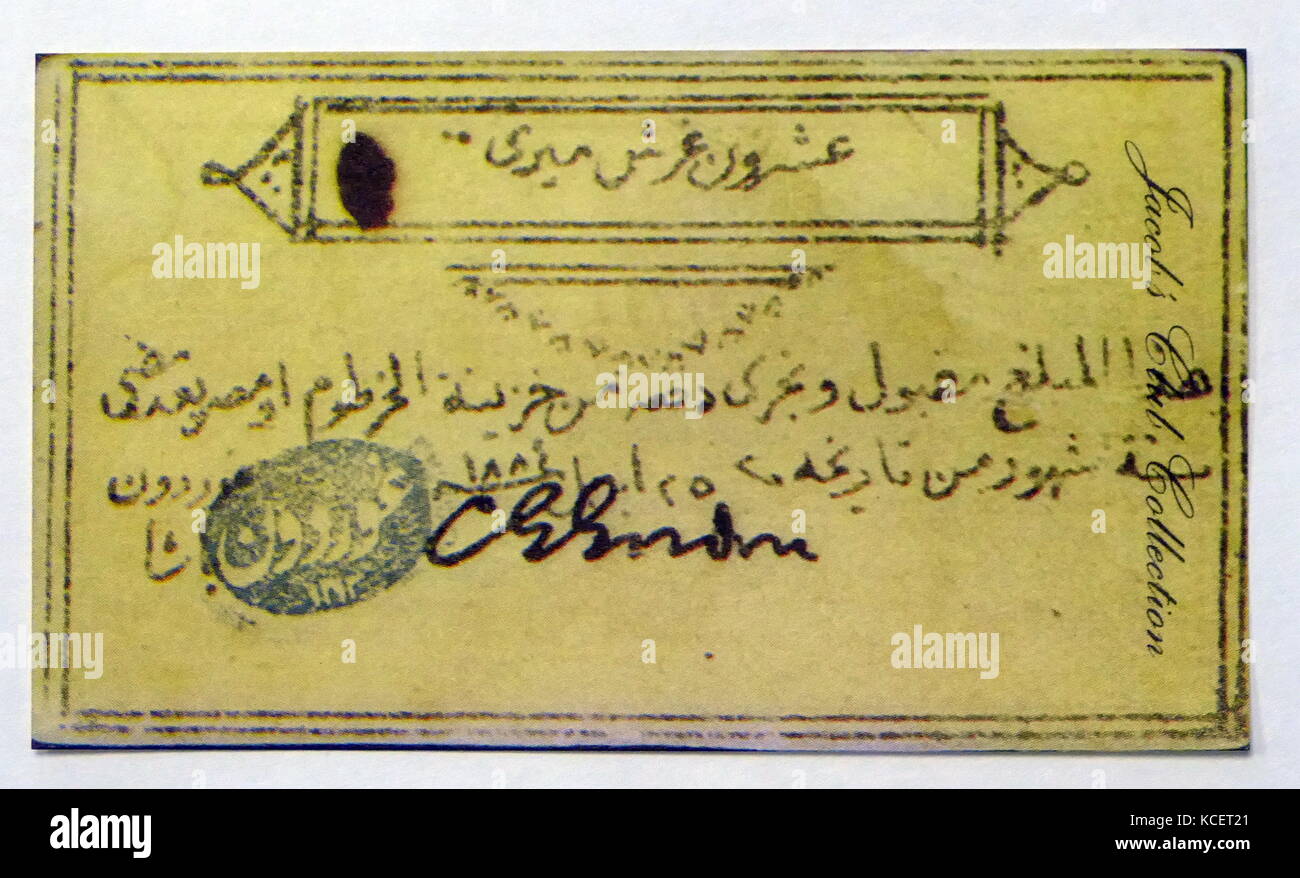 عشرون غرش ميرى
هذا المبلغ مقبول ويجرى دفعه من خزينة الخرطوم او مصر بعد مضى
ستة شهور من تاريخه ٢٥ ابريل ١٨٨٤
غوردون
باشا
C E Gordon
Jacob's Coul Collection
alamy
alamy stock photo
KCET21
www.alamy.com